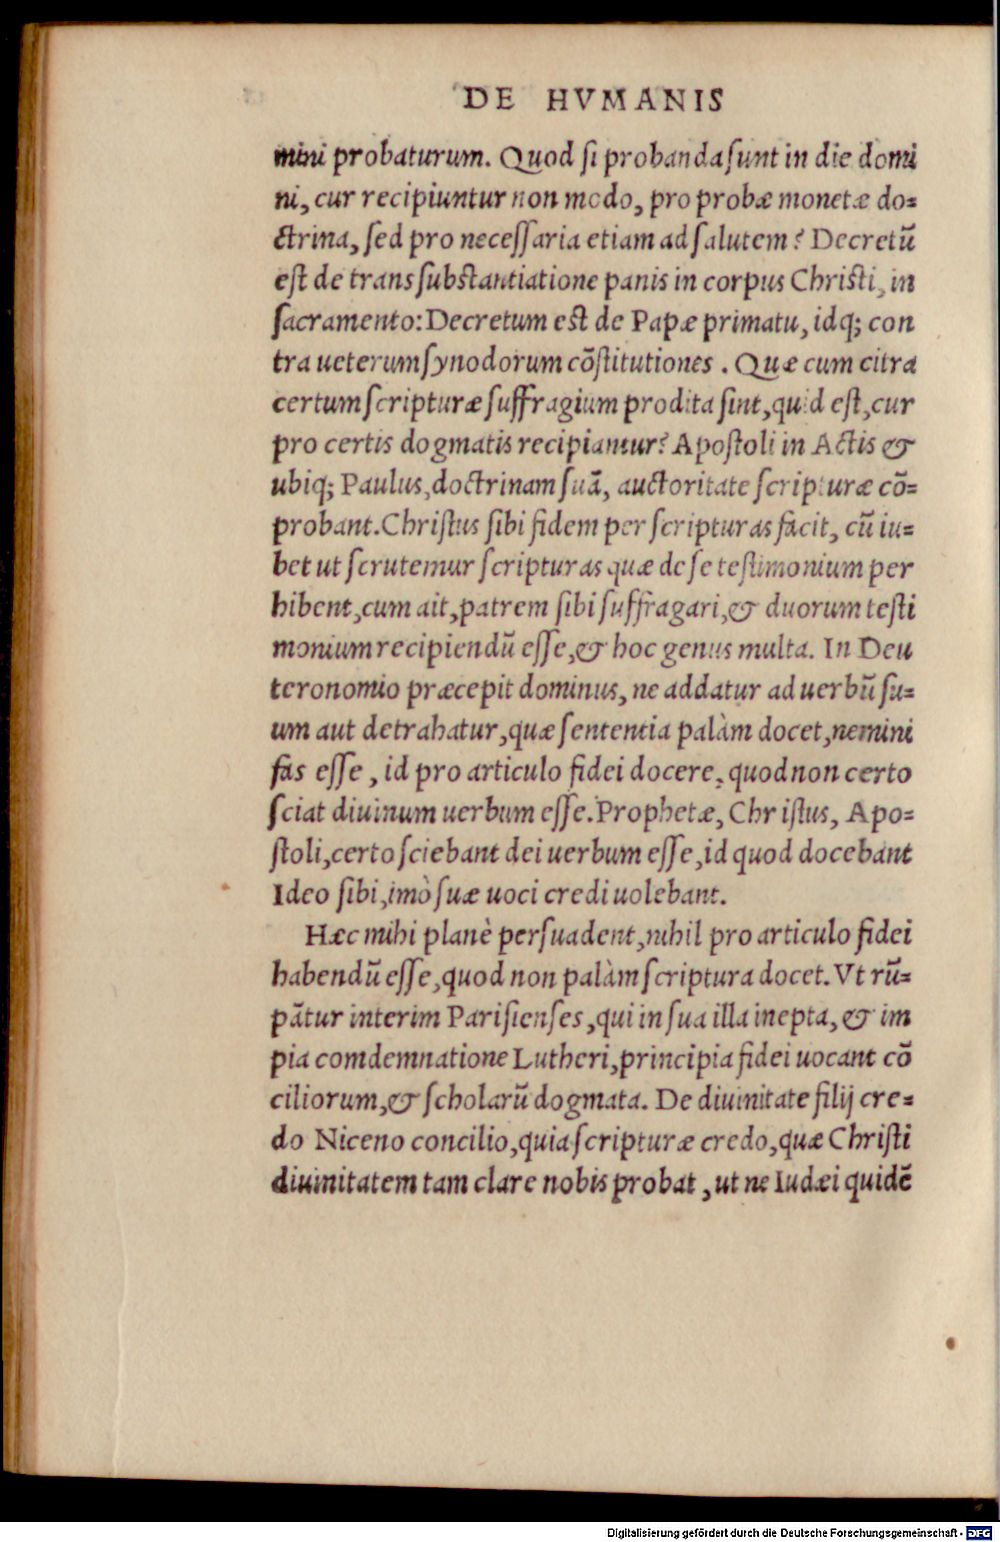 DE HVMANIS
mini probaturum. Quod ſi probanda ſunt in die domi
ni, cur recipiuntur non modo, pro probæ monetæ do=
ctrina, ſed pro neceſſaria etiam ad ſalutem? Decretū
eſt de transſubstantiatione panis in corpus Chriſti, in
ſacramento: Decretum eſt de Papæ primatu, idq; con
tra ueterum ſynodorum cōſtitutiones. Quæ cum citra
certum ſcripturæ ſuffragium prodita ſint, quid eſt, cur
pro certis dogmatis recipiantur? Apoſtoli in Actis &
ubiq; Paulus, doctrinam ſuā, auctoritate ſcripturæ cō=
probant. Chriſtus ſibi fidem per ſcripturas facit, cū iu=
bet ut ſcrutemur ſcripturas quæ de ſe teſtimonium per
hibent, cum ait, patrem ſibi ſuffragari, & duorum teſti
monium recipiendū eſſe, & hoc genus multa. In Deu
teronomio præcepit dominus, ne addatur ad uerbū ſu=
um aut detrahatur, quæ ſententia palàm docet, nemini
fas eſſe, id pro articulo fidei docere, quod non certo
ſciat diuinum uerbum eſſe. Prophetæ, Chriſtus, Apo=
ſtoli, certo ſciebant dei uerbum eſſe, id quod docebant
Ideo ſibi, imò ſuæ uoci credi uolebant.
Hæc mihi planè perſuadent, nihil pro articulo fidei
habendū eſſe, quod non palàm ſcriptura docet. Vt rū=
pātur interim Pariſienſes, qui in ſua illa inepta, & im
pia comdemnatione Lutheri, principia fidei uocant cō
ciliorum, & ſcholarū dogmata. De diuinitate filij cre=
do Niceno concilio, quia ſcripturæ credo, quæ Chriſti
diuinitatem tam clare nobis probat, ut ne Iudæi quidē
Digitalisierung gefördert durch die Deutsche Forschungsgemeinschaft - DFG